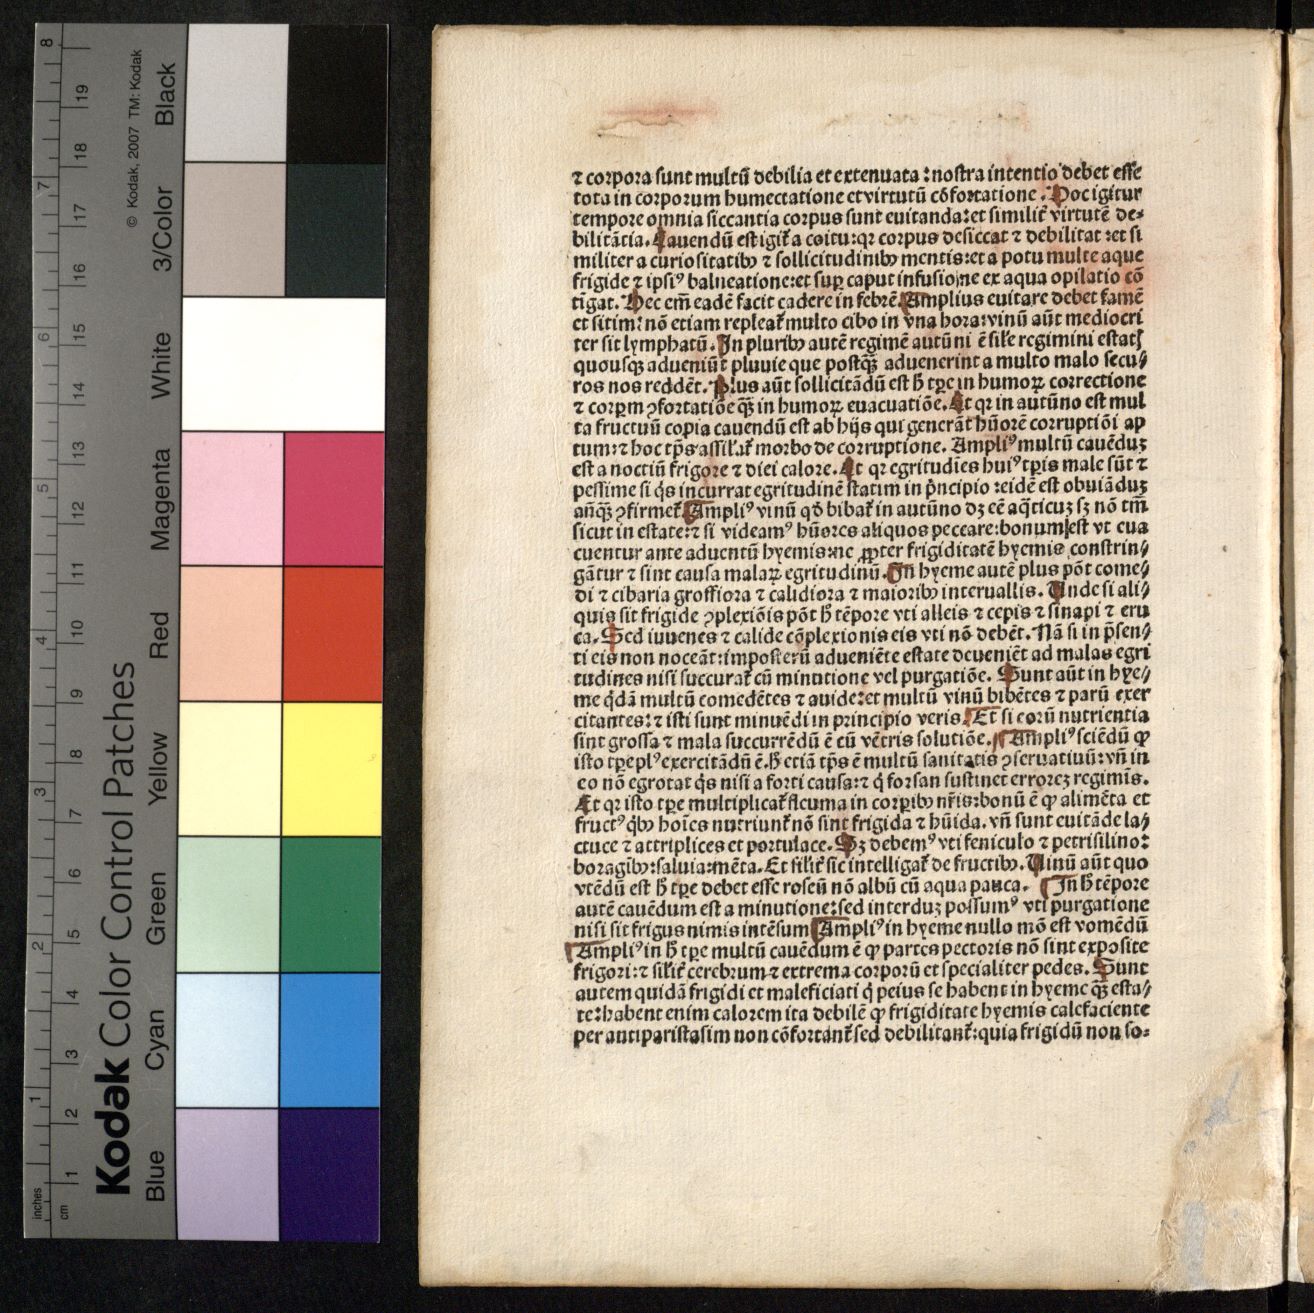 ⁊ corpora sunt multũ debilia et extenuata : nostra intentio debet esse
tota in corporum humectatione et virtutũ cõfortatione . Hoc igitur
tempore omnia siccantia corpus sunt euitanda:et similit᷑ virtutẽ de-
bilitãtia. Cauendũ est igit᷑ a coitu:qꝛ corpus desiccat ⁊ debilitat :et si
militer a curiositatibꝰ ⁊ sollicitudinibꝰ mentis:et a potu multe aque
frigide ⁊ ipsiꝰ balneatione:et suꝑ caput infusione ex aqua opilatio cõ
tĩgat. Hec em̃ eadẽ facit cadere in febrẽ. Amplius euitare debet famẽ
et sitim: nõ etiam repleat᷑ multo cibo in vna hora:vinũ aũt mediocri
ter sit lymphatũ. In pluribꝰ autẽ regimẽ autũni ẽ sil̃e regimini estatꝭ
quousqꝫ adueniũt pluuie que postqꝫ̃ aduenerint a multo malo secu/
ros nos reddẽt. Plus aũt sollicitãdũ est h̃ tꝑe in humoꝝ correctione
⁊ corꝑm ꝯfortatiõe qꝫ̃ in humoꝝ euacuatiõe. Et qꝛ in autũno est mul
ta fructuũ copia cauendũ est ab hijs qui generãt hũorẽ corruptiõi ap
tum:⁊ hoc tp̃s assil̃at᷑ morbo de corruptione. Ampliꝰ multũ cauẽduꝫ
est a noctiũ frigore ⁊ diei calore. Et qꝛ egritudĩes huiꝰ tꝑis male sũt ⁊
pessime si q̃s incurrat egritudinẽ statim in p̃ncipio :eidẽ est obuiãduꝫ
añqꝫ̃ ꝯfirmet᷑. Ampliꝰ vinũ qd̃ bibat᷑ in autũno dꝫ eẽ aq̃ticuꝫ sꝫ nõ tm̃
sicut in estate:⁊ si videamꝰ hũores aliquos peccare:bonum est vt eua
cuentur ante aduentũ hyemis:ne ꝓpter frigiditatẽ hyemis constrin/
gãtur ⁊ sint causa malaꝝ egritudinũ. In hyeme autẽ plus põt come/
di ⁊ cibaria grossiora ⁊ calidiora ⁊ maioribꝰ interuallis. Unde si ali/
quis sit frigide ꝯplexiõis põt h̃ tẽpore vti alleis ⁊ cepis ⁊ sinapi ⁊ eru
ca. Sed iuuenes ⁊ calide cõplexionis eis vti nõ debẽt. Nã si in p̃sen/
ti eis non noceãt:imposterũ adueniẽte estate deueniẽt ad malas egri
tudines nisi succurat᷑ cũ minutione vel purgatiõe. Sunt aũt in hye/
me q̃dã multũ comedẽtes ⁊ auide:et multũ vinũ bibẽtes ⁊ parũ exer
citantes:⁊ isti sunt minuẽdi in principio veris. Et si eorũ nutrientia
sint grossa ⁊ mala succurrẽdũ ẽ cũ vẽtris solutiõe. Ampliꝰ sciẽdũ ꝙ
isto tꝑe plꝰ exercitãdũ ẽ.h̃ etiã tp̃s ẽ multũ sanitatis ꝯseruatiuũ:vñ in
eo nõ egrotat q̃s nisi a forti causa:⁊ q̃ forsan sustinet erroreꝫ regimĩs.
Et qꝛ isto tꝑe multiplicat᷑ fleuma in corꝑibꝰ nr̃is:bonũ ẽ ꝙ alimẽta et
fructꝰ q̃bꝰ hoĩes nutriunt᷑ nõ sint frigida ⁊ hũida. vñ sunt euitãde la/
ctuce ⁊ attriplices et portulace. Sꝫ debemꝰ vti feniculo ⁊ petrisilino:
boragibꝰ:saluia:mẽta. Et sil̃it᷑ sic intelligat᷑ de fructibꝰ. Uinũ aũt quo
vtẽdũ est h̃ tꝑe debet esse roseũ nõ albũ cũ aqua pauca. In h̃ tẽpore
autẽ cauẽdum est a minutione:sed interduꝫ possumꝰ vti purgatione
nisi sit frigus nimis intẽsum. Ampliꝰ in hyeme nullo mõ est vomẽdũ
Ampliꝰ in h̃ tꝑe multũ cauẽdum ẽ ꝙ partes pectoris nõ sint exposite
frigori:⁊ sil̃it᷑ cerebrum ⁊ extrema corporũ et specialiter pedes. Sunt
autem quidã frigidi et maleficiati q̃ peius se habent in hyeme qꝫ̃ esta/
te:habent enim calorem ita debilẽ ꝙ frigiditate hyemis calefaciente
per antiparistasim non cõfortant᷑ sed debilitant᷑:quia frigidũ non so-
Kodak Color Control Patches
© Kodak, 2007 TM: Kodak
Blue Cyan Green Yellow Red Magenta White 3/Color Black
inches 1 2 3 4 5 6 7 8
cm 1 2 3 4 5 6 7 8 9 10 11 12 13 14 15 16 17 18 19